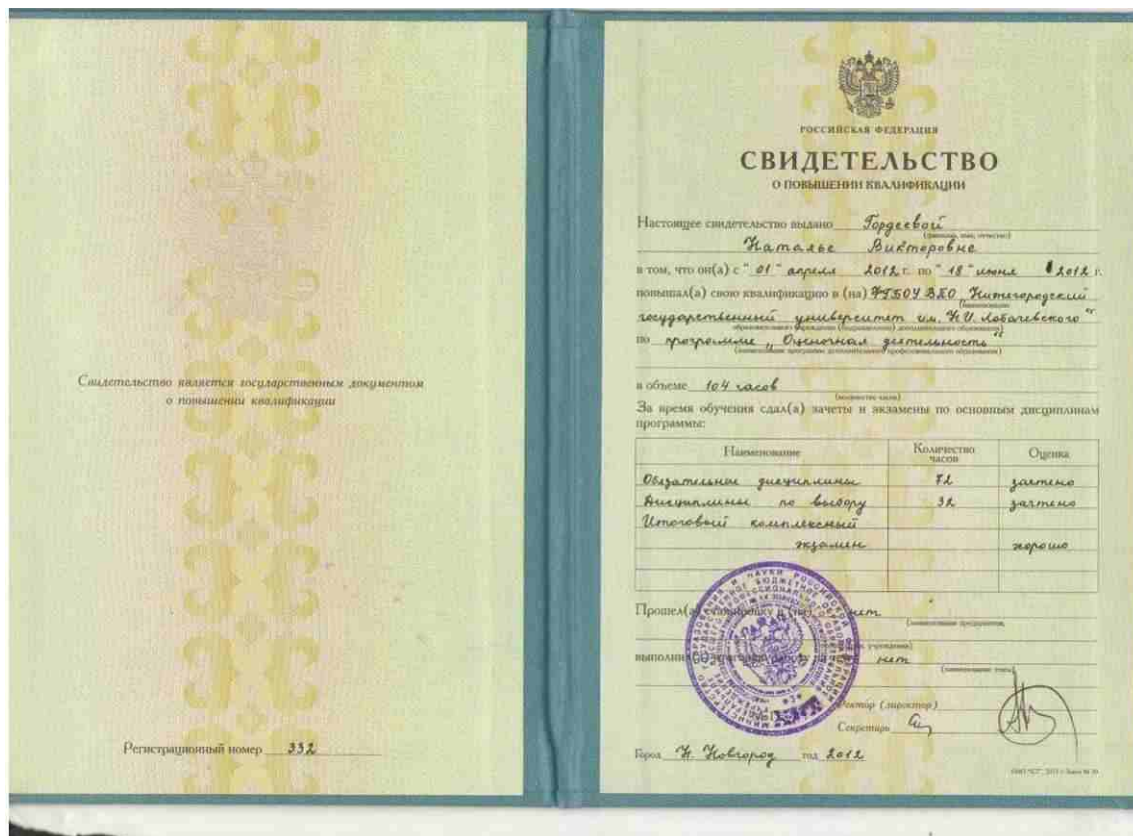 Свидетельство является государственным документом
о повышении квалификации
Регистрационный номер 332
РОССИЙСКАЯ ФЕДЕРАЦИЯ
СВИДЕТЕЛЬСТВО
О ПОВЫШЕНИИ КВАЛИФИКАЦИИ
Настоящее свидетельство выдано Гордеевой
(фамилия, имя, отчество)
Наталье Викторовне
в том, что он(а) с "01" апреля 2012 г. по "18" июня 2012 г.
повышал(а) свою квалификацию в (на) ФГБОУ ВПО "Нижегородский
(наименование
государственный университет им. Н.И. Лобачевского"
образовательного учреждения (подразделения) дополнительного образования)
по программе "Оценочная деятельность"
(наименование программы дополнительного профессионального образования)
в объеме 104 часов
(количество часов)
За время обучения сдал(а) зачеты и экзамены по основным дисциплинам
программы:
Наименование Количество часов Оценка
Обязательные дисциплины 72 зачтено
Дисциплины по выбору 32 зачтено
Итоговый комплексный
экзамен хорошо
Прошел(а) стажировку в (на) нет
(наименование предприятия,
учреждения)
выполнил(а) итоговую работу на нет
(наименование темы)
Ректор (директор)
Секретарь
Город Н. Новгород год 2012